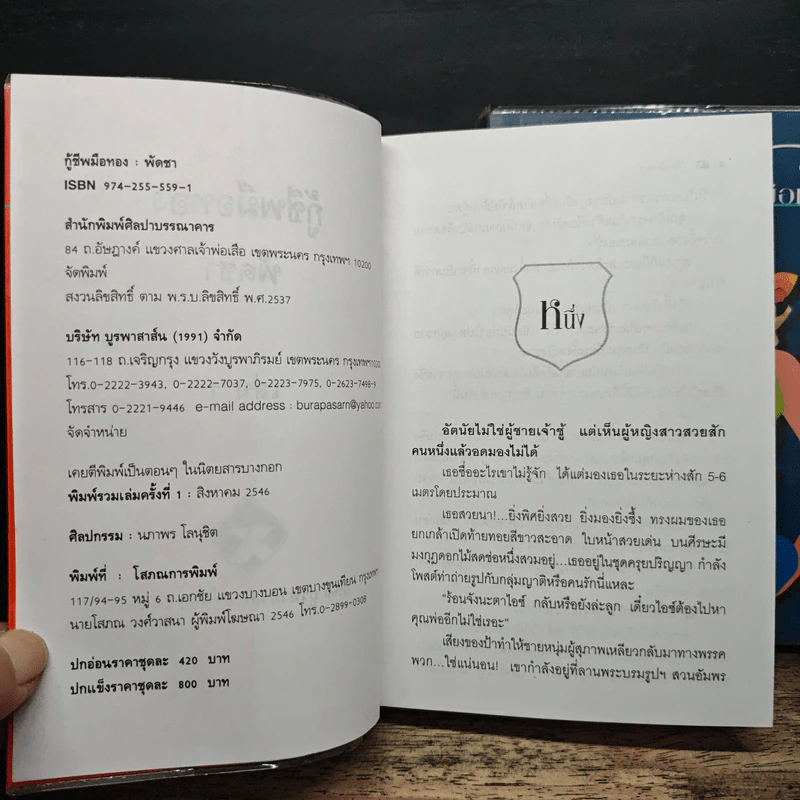 กู้ชีพมือทอง : พัดชา
ISBN 974-255-559-1
สำนักพิมพ์ศิลปาบรรณาคาร
84 ถ.อัษฎางค์ แขวงศาลเจ้าพ่อเสือ เขตพระนคร กรุงเทพฯ 10200
จัดพิมพ์
สงวนลิขสิทธิ์ ตาม พ.ร.บ.ลิขสิทธิ์ พ.ศ.2537
บริษัท บูรพาสาส์น (1991) จำกัด
116-118 ถ.เจริญกรุง แขวงวังบูรพาภิรมย์ เขตพระนคร กรุงเทพฯ
โทร.0-2222-3943, 0-2222-7037, 0-2223-7975, 0-2623-7498-9
โทรสาร 0-2221-9446 e-mail address : burapasarn@yahoo.com
จัดจำหน่าย
เคยตีพิมพ์เป็นตอนๆ ในนิตยสารบางกอก
พิมพ์รวมเล่มครั้งที่ 1 : สิงหาคม 2546
ศิลปกรรม : นภาพร โลนุชิต
พิมพ์ที่ : โสภณการพิมพ์
117/94-95 หมู่ 6 ถ.เอกชัย แขวงบางบอน เขตบางขุนเทียน กรุงเทพฯ
นายโสภณ วงศ์วาสนา ผู้พิมพ์โฆษณา 2546 โทร.0-2899-0308
ปกอ่อนราคาชุดละ 420 บาท
ปกแข็งราคาชุดละ 800 บาท
หนึ่ง
อัตนัยไม่ใช่ผู้ชายเจ้าชู้ แต่เห็นผู้หญิงสาวสวยสัก
คนหนึ่งแล้วอดมองไม่ได้
เธอชื่ออะไรเขาไม่รู้จัก ได้แต่มองเธอในระยะห่างสัก 5-6
เมตรโดยประมาณ
เธอสวยนา!...ยิ่งพิศยิ่งสวย ยิ่งมองยิ่งซึ้ง ทรงผมของเธอ
ยกเกล้าเปิดท้ายทอยสีขาวสะอาด ใบหน้าสวยเด่น บนศีรษะมี
มงกุฎดอกไม้สดช่อหนึ่งสวมอยู่...เธออยู่ในชุดครุยปริญญา กำลัง
โพสต์ท่าถ่ายรูปกับกลุ่มญาติหรือคนรักนี่แหละ
"ร้อนจังนะตาไอซ์ กลับหรือยังล่ะลูก เดี๋ยวไอซ์ต้องไปหา
คุณพ่ออีกไม่ใช่เรอะ"
เสียงของป้าทำให้ชายหนุ่มผู้สุภาพเหลียวกลับมาทางพรรค
พวก...ใช่แน่นอน! เขากำลังอยู่ที่ลานพระบรมรูปฯ สวนอัมพร